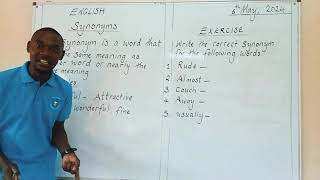 ENGLISH
Synonyms
Synonym is a word that
same meaning as
word or nearly the
meaning
Attractive
wonderful fine
6th May, 2024
EXERCISE
Write the correct Synonym
for the following words
1. Rude -
2. Almost -
3. Couch -
4. Away -
5. usually -